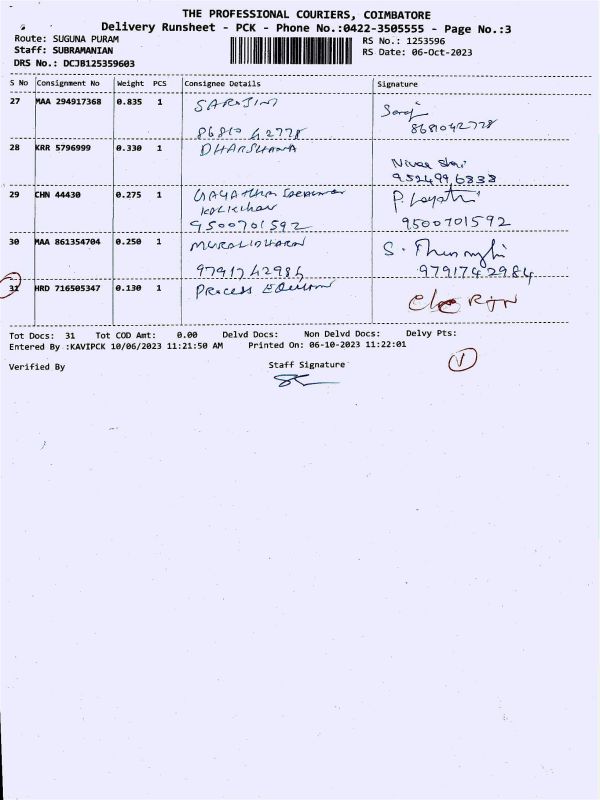 THE PROFESSIONAL COURIERS, COIMBATORE
Delivery Runsheet - PCK - Phone No.:0422-3505555 - Page No.:3
Route: SUGUNA PURAM
RS No.: 1253596
Staff: SUBRAMANIAN
RS Date: 06-Oct-2023
DRS No.: DCJB125359603
S No Consignment No Weight PCS Consignee Details Signature
27 MAA 294917368 0.835 1 SAROJINI
Saroj
86810 42778 8681042778
28 KRR 5796999 0.330 1 DHARSHANA
9524996333
29 CHN 44430 0.275 1
9500701592 9500701592
30 MAA 861354704 0.250 1 MURALIDHARAN
9791742984 9791742984
31 HRD 716505347 0.130 1 PROCESS
RTN
Tot Docs: 31 Tot COD Amt: 0.00 Delvd Docs: Non Delvd Docs: Delvy Pts:
Entered By :KAVIPCK 10/06/2023 11:21:50 AM Printed On: 06-10-2023 11:22:01
Verified By Staff Signature